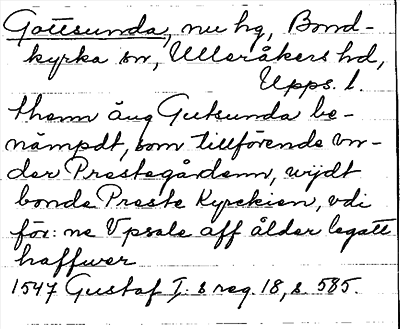 Gottsunda, nu hg, Bond-
kyrka sn, Ulleråkers hd,
Upps. l.
thenn äng Gutsunda be-
nämpdt, som tillförende vn-
der Prestegårdenn, wijdt
bonde Preste Kyrekien, vdi
för: ne Vpsale aff ålder legatt
haffwer
1547 Gustaf I:s reg. 18, s. 585.